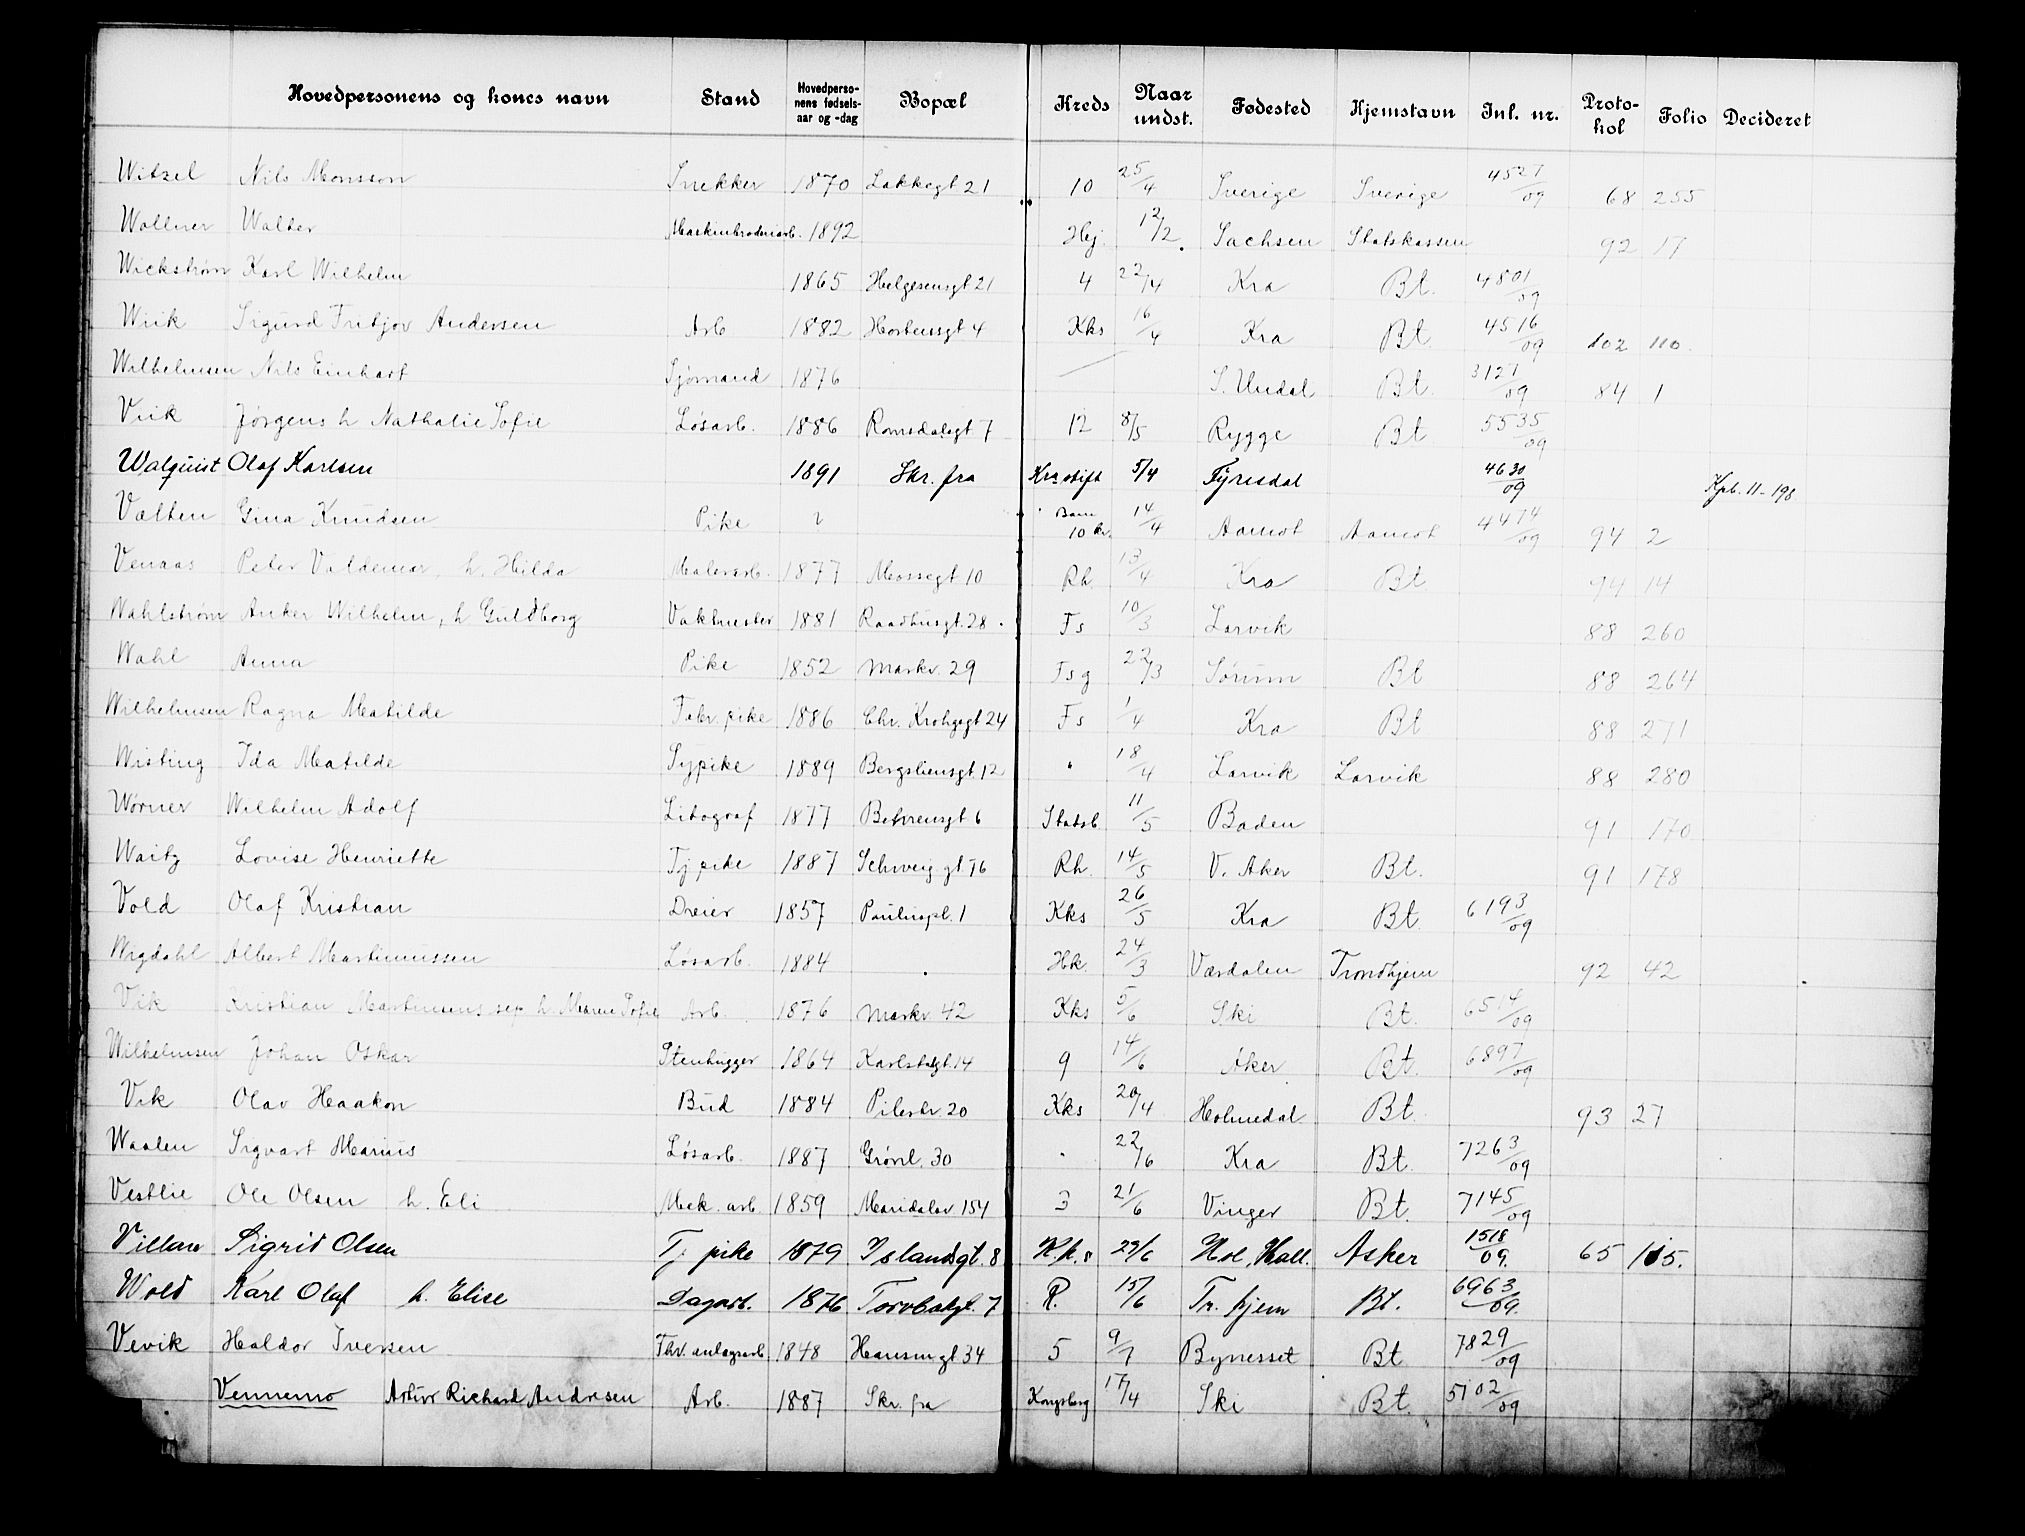 Hovedpersonens og kones navn Stand Hovedpersonens fødselsaar og -dag Bopæl Kreds Naar undst. Fødested Hjemstavn Inl. nr. Protokol Folio Decideret
Witzel Nils Monsson Snekker 1870 Lakkegt 21 10 25/4 Sverige Sverige 4527/09 68 255
Wollner Walter 1892 Hej. 12/2 Sachsen Statskassen 92 17
Wickstrøm Karl Wilhelm 1865 Helgesensgt 21 4 22/4 Kra Bt. 4801/09
Wiik Sigurd Fritjov Andersen Arb 1882 Hortensgt 4 Kks 16/4 Kra Bt. 4516/09 102 110.
Wilhelmsen Nils Einhart Sjømand 1876 — S. Undal Bt. 3127/09 84 1
Viik Jørgens h Nathalie Sofie Løsarb. 1886 Romsdalsgt 7 12 8/5 Rygge Bt 5535/09
Walquist Olaf Karlsen 1891 Skr. fra Kra stift 5/4 Fyrisdal 4630/09 Kpb. 11-198
Vælten Gina Knudsen Pike 10 kr. 14/4 Aamot Aamot 4474/09 94 2
Venaas Peter Valdemar, h. Hilda Malerarb. 1877 Mossegt 10 Rh. 13/4 Kra Bt 94 14
Wahlstrøm Anker Wilhelm, h Guldborg Vaktmester 1881 Raadhusgt. 28 Fs 10/3 Larvik 88 260
Wahl Anna Pike 1852 Markv. 29 Fsg 22/3 Sørum Bt 88 264
Wilhelmsen Ragna Matilde Fabr. pike 1886 Chr. Krohgsgt 24 Fs 1/4 Kra Bt 88 271
Wisting Ida Matilde Sypike 1889 Bergsliensgt. 12 " 18/4 Larvik Larvik 88 280
Wörner Wilhelm Adolf Litograf 1877 Behrensgt 6 Statsb. 11/5 Baden 91 170
Waitz Lovise Henriette Tj pike 1887 Schweig gt 76 Rh. 14/5 V. Aker Bt. 91 178
Vold Olaf Kristian Dreier 1857 Pauluspl. 1 Kks 26/5 Kra Bt. 6193/09
Wigdahl Albert Martinussen Løsarb. 1884 Hk. 24/3 Værdalen Trondhjem 92 42
Vik Kristian Martinsens sep h. Maren Sofie Arb. 1876 Markv. 42 Kks 5/6 Ski Bt. 6514/09
Wilhelmsen Johan Oskar Stenhugger 1864 Karlstadgt. 14 9 14/6 Aker Bt. 6897/09
Vik Olav Haakon Bud 1884 Pilestr. 20 Kks 20/4 Holmedal Bt. 93 27
Waalen Sigvart Marius Løsarb. 1887 Grønl. 30 " 22/6 Kra Bt. 7263/09
Vestlie Ole Olsen h. Eli Mek. arb. 1859 Maridalsv. 154 3 21/6 Vinger Bt. 7145/09
Sigrid Olsen Tj. pike 1879 Islandsgt. 8 K.k.s 29/6 Hol, Hall. Asker 1518/09. 65 115.
Wold Karl Olaf h. Elise Dagarb. 1876 Torvbakgt. 7 R. 15/6 Tr. hjem Bt. 6963/09.
Vevik Haldor Iversen Fhv. anlægsarb. 1848 Hausmgt 34 5 9/7 Bynesset Bt 7829/09
Vennemo Artur Richard Andresen Arb. 1887 Skr. fra Kongsberg 17/4 Ski Bt. 5102/09